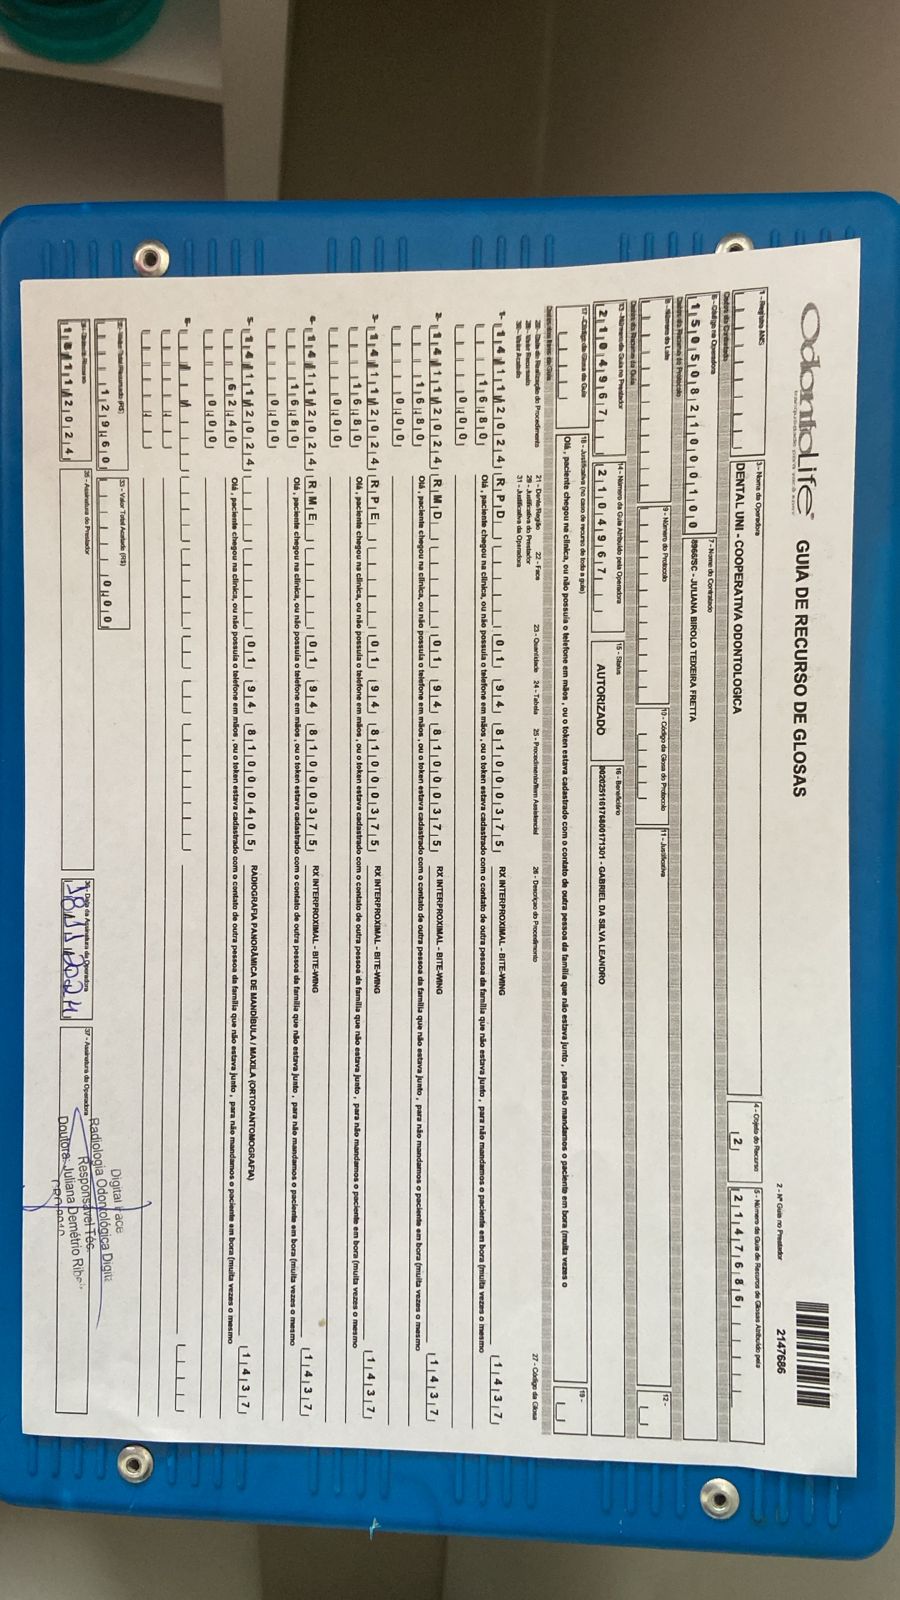 OdontoLife
GUIA DE RECURSO DE GLOSAS
2 - Nº Guia no Prestador
2147686
1 - Registro ANS
3 - Nome da Operadora
DENTAL UNI - COOPERATIVA ODONTOLOGICA
4 - Objeto do Recurso
2
5 - Número da Guia de Recurso de Glosas Atribuído pela
2147686
Dados do Contratado
6 - Código na Operadora
15050821000100
7 - Nome do Contratado
8966/SC - JULIANA BIROLO TEIXEIRA FRETTA
Dados do Recurso do Protocolo
8 - Número do Lote
9 - Número do Protocolo
10 - Código da Glosa do Protocolo
11 - Justificativa
12 -
Dados do Recurso da Guia
13 - Número da Guia no Prestador
21049671
14 - Número da Guia Atribuído pela Operadora
21049671
15 - Status
AUTORIZADO
16 - Beneficiário
GABRIEL DA SILVA LEANDRO
17 - Código da Glosa da Guia
18 - Justificativa (no caso de recurso de toda a guia)
Olá , paciente chegou na clinica, ou não possuia o telefone em mãos , ou o token estava cadastrado com o contato de outra pessoa da familia que não estava junto , para não mandamos o paciente em bora (muita vezes o
19 -
Dados dos Itens da Guia
20 - Data de Realização do Procedimento
21 - Dente/Região
22 - Face
23 - Quantidade
24 - Tabela
25 - Procedimento/Item Assistencial
26 - Descrição do Procedimento
27 - Código da Glosa
28 - Valor Recursado
29 - Justificativa do Prestador
30 - Valor Acatado
31 - Justificativa da Operadora
1- 14/11/2024 RPD 01 94 81000375 RX INTERPROXIMAL - BITE-WING 1437
1680 Olá , paciente chegou na clinica, ou não possuia o telefone em mãos , ou o token estava cadastrado com o contato de outra pessoa da familia que não estava junto , para não mandamos o paciente em bora (muita vezes o mesmo
000
2- 14/11/2024 RMD 01 94 81000375 RX INTERPROXIMAL - BITE-WING 1437
1680 Olá , paciente chegou na clinica, ou não possuia o telefone em mãos , ou o token estava cadastrado com o contato de outra pessoa da familia que não estava junto , para não mandamos o paciente em bora (muita vezes o mesmo
000
3- 14/11/2024 RPE 01 94 81000375 RX INTERPROXIMAL - BITE-WING 1437
1680 Olá , paciente chegou na clinica, ou não possuia o telefone em mãos , ou o token estava cadastrado com o contato de outra pessoa da familia que não estava junto , para não mandamos o paciente em bora (muita vezes o mesmo
000
4- 14/11/2024 RME 01 94 81000375 RX INTERPROXIMAL - BITE-WING 1437
1680 Olá , paciente chegou na clinica, ou não possuia o telefone em mãos , ou o token estava cadastrado com o contato de outra pessoa da familia que não estava junto , para não mandamos o paciente em bora (muita vezes o mesmo
000
5- 14/11/2024 01 94 81000405 RADIOGRAFIA PANORÂMICA DE MANDÍBULA / MAXILA (ORTOPANTOMOGRAFIA) 1437
6240 Olá , paciente chegou na clinica, ou não possuia o telefone em mãos , ou o token estava cadastrado com o contato de outra pessoa da familia que não estava junto , para não mandamos o paciente em bora (muita vezes o mesmo
000
6-
12960
33 - Valor Total Acatado (R$)
000
18/11/2024
35 - Assinatura do Prestador
36 - Data da Assinatura da Operadora
18/11/2024
37 - Assinatura da Operadora
Digital Face
Radiologia Odontológica Digital
Responsável Téc.
Doutora: Juliana Demétrio